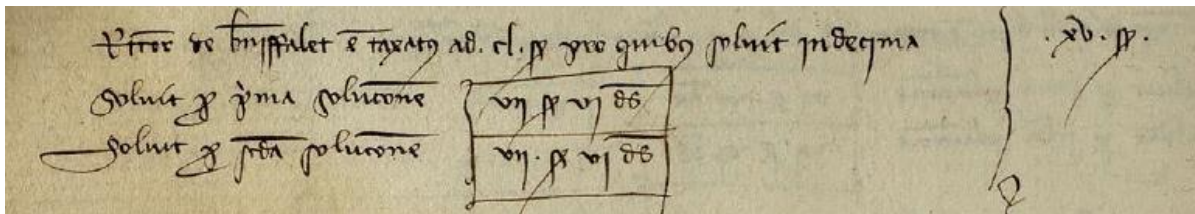 Rector de beniffalet e taxatus ad. cl. ss pro quibus soluit in decima . xv. ss.
Soluit p prima solucone vii ss vi ds
Soluit p scda solucone vii. ss vi ds